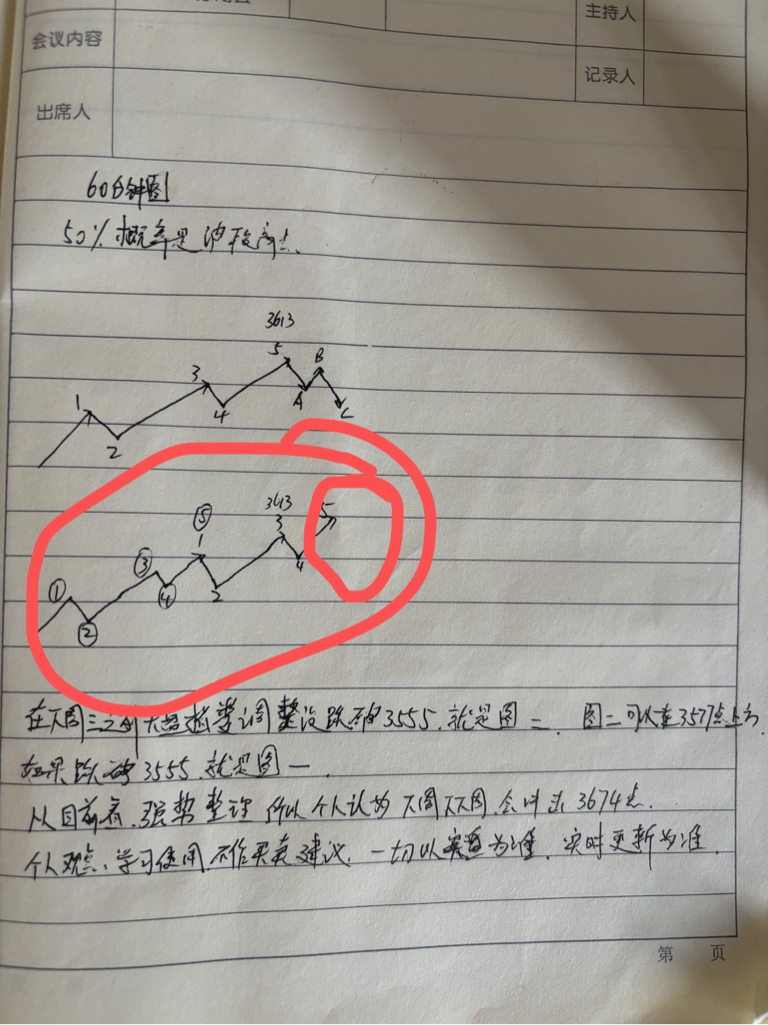 主持人
会议内容
记录人
出席人
60分钟图
50%概率是波段高点.
3613
5
B
3
1
A
4
C
2
3613
5
⑤
3
1
③
4
①
④
2
②
在下周三之前大盘指学调整没跌破3555.就是图二. 图二可以在3577点上方,
如果跌破3555.就是图一.
从目前看.强势整理 所以个人认为 下周下下周.会冲击3674点.
个人观点.学习使用.不作买卖建议. 一切以实盘为准. 实时更新为准.
第 页